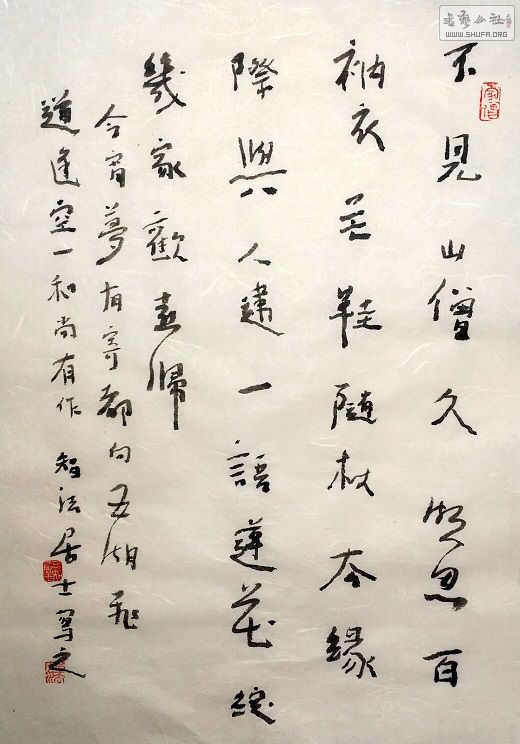 不見山僧久相思百
衲衣芒鞋隨杖去緣
際與人違一語蓮花綻
幾家歡喜歸
今宵夢有寄都向五湖飛
道逢空一和尚有作 智法居士寫之
書藝公社
WWW.SHUFA.ORG